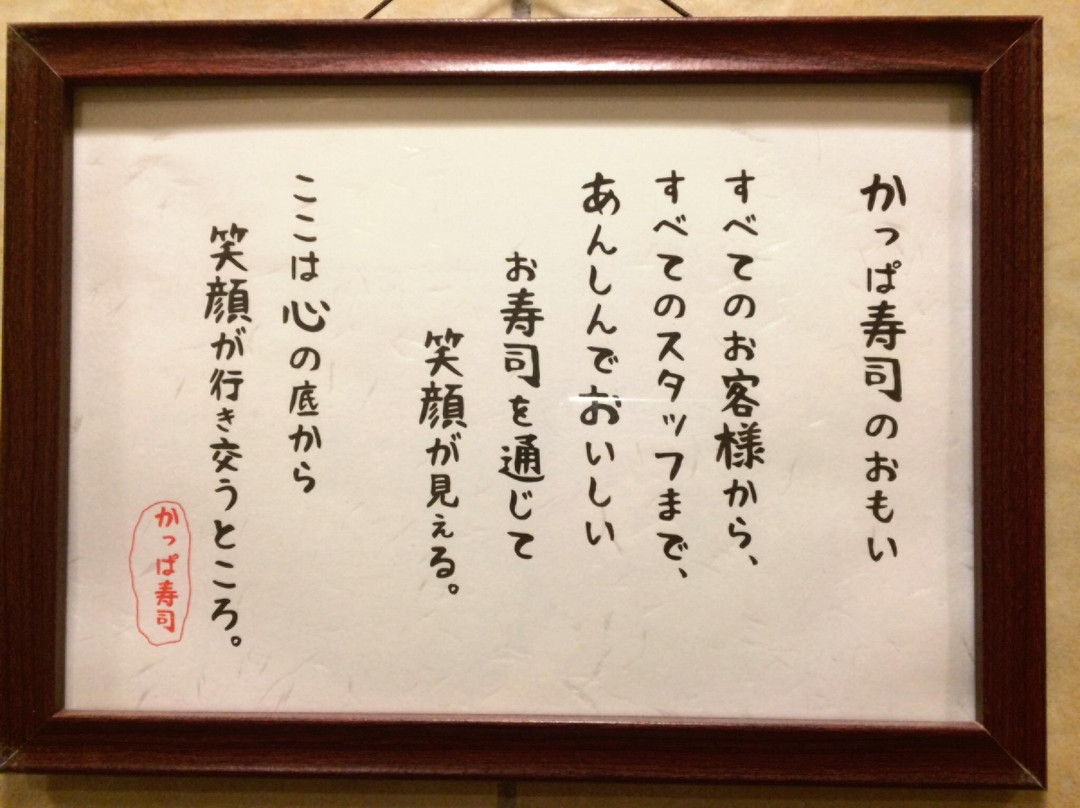 かっぱ寿司のおもい
すべてのお客様から、
すべてのスタッフまで、
あんしんでおいしい
お寿司を通じて
笑顔が見える。
ここは心の底から
笑顔が行き交うところ。
かっぱ寿司